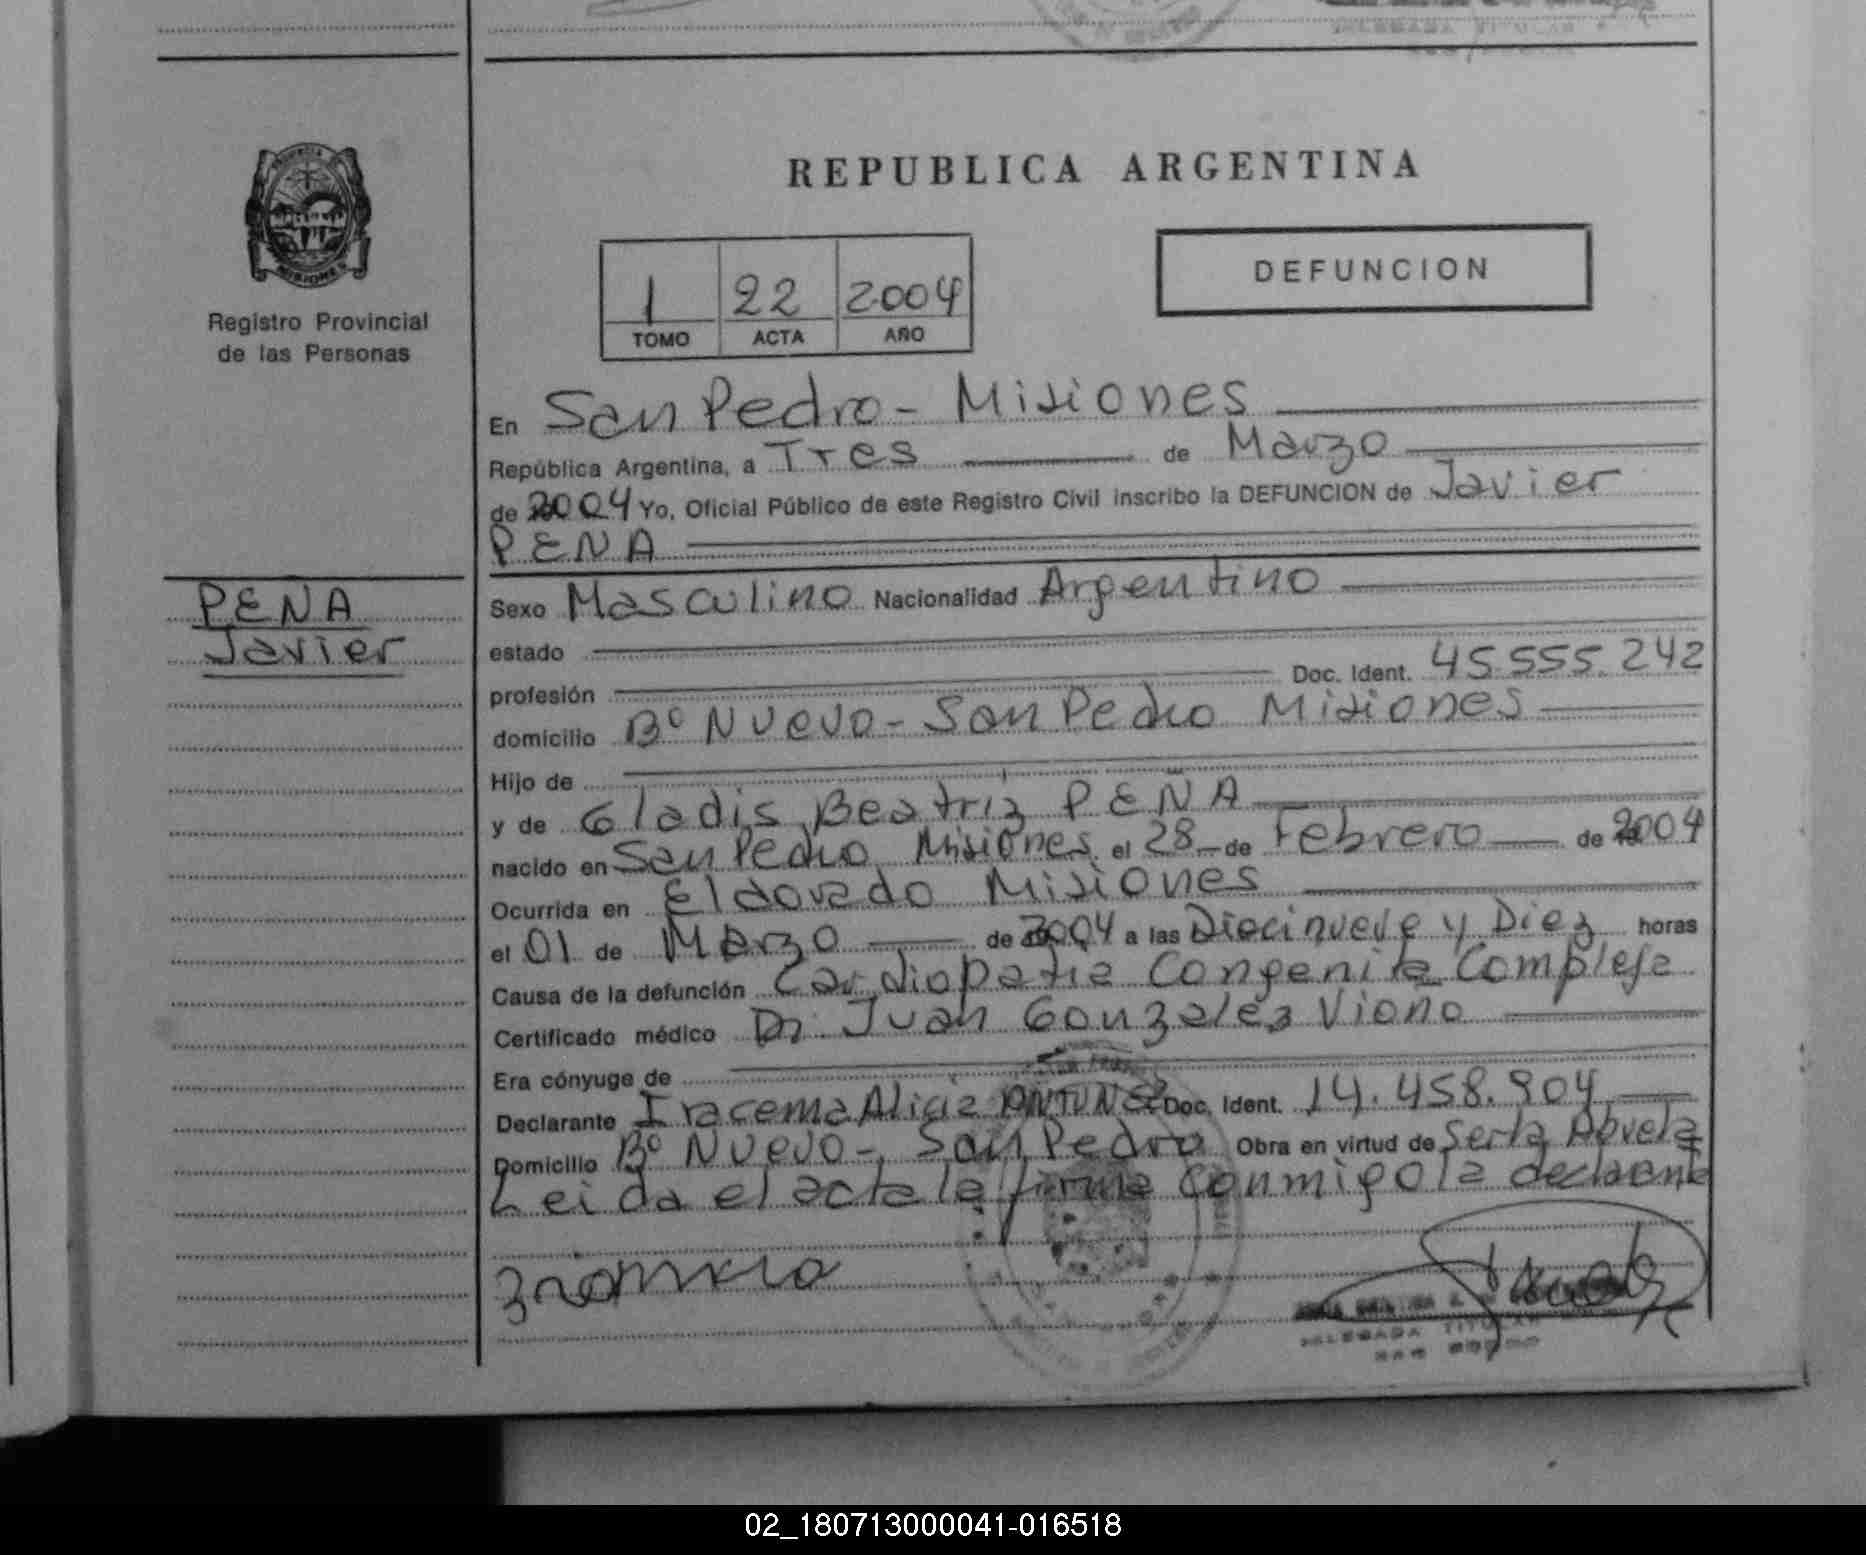 REPUBLICA ARGENTINA
DEFUNCION
1 22 2004
TOMO ACTA AÑO
MISIONES
Registro Provincial
de las Personas
PENA
Javier
En San Pedro - Misiones
República Argentina, a Tres de Marzo
de 2004 Yo, Oficial Público de este Registro Civil inscribo la DEFUNCION de Javier
PENA
Sexo Masculino Nacionalidad Argentino
estado
profesión Doc. Ident. 45.555.242
domicilio Bº Nuevo - San Pedro Misiones
Hijo de
y de Gladis Beatriz PENA
nacido en San Pedro Misiones el 28 de Febrero de 2004
Ocurrida en Eldorado Misiones
el 01 de Marzo de 2004 a las Diecinueve y Diez horas
Causa de la defunción Cardiopatia Congenita Compleja
Certificado médico Dr. Juan Gonzalez Viana
Era cónyuge de
Declarante Iracema Alicia ANTUNEZ Doc. Ident. 14.458.904
Domicilio Bº Nuevo - San Pedro Obra en virtud de Serla Abuela
Leida el acta la firma conmigo la declarante
DELEGADA TITULAR
SAN PEDRO
02_180713000041-016518